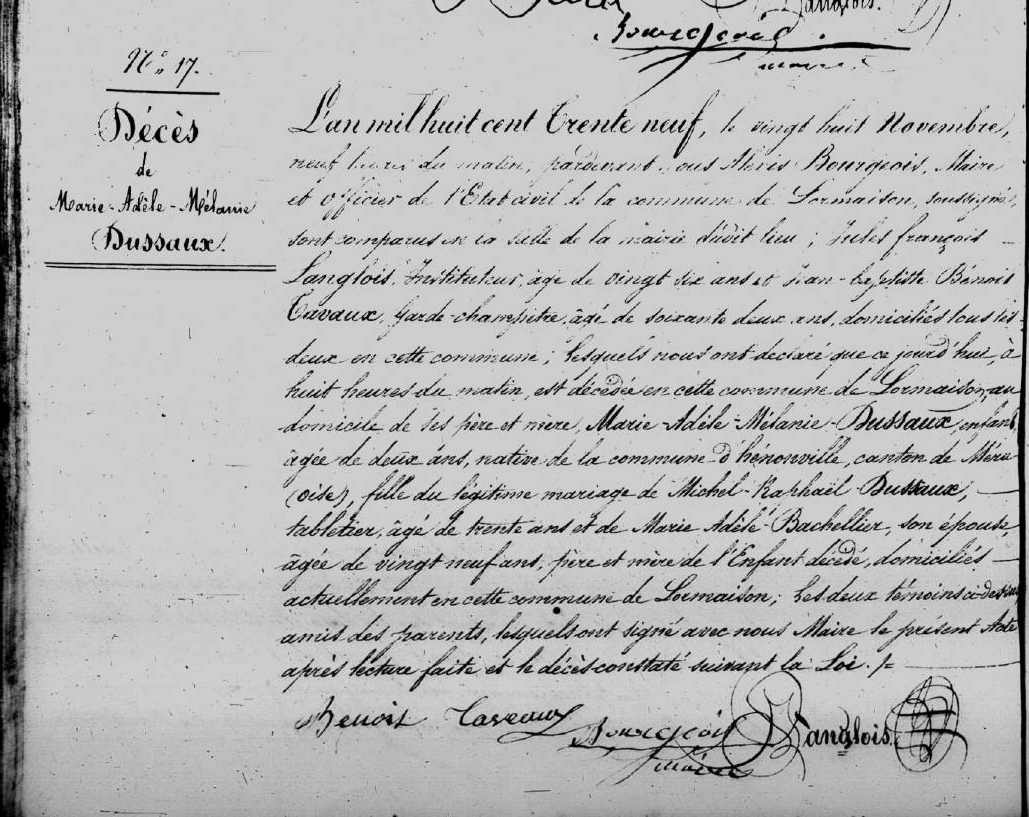 Langlois.
Bourgeois
maire
N.° 17.
Décès
de
Marie-Adèle-Mélanie
Dussaux.
L'an mil huit cent Trente neuf, le vingt huit Novembre,
neuf heures du matin, pardevant nous Alexis Bourgeois, Maire
et officier de l'Etat civil de la commune de Lormaison, soussigné,
sont comparus en la salle de la mairie dudit lieu ; Jules françois
Langlois, Instituteur, âgé de vingt six ans et Jean-baptiste Bénoit
Tavaux, Garde-champêtre, âgé de soixante deux ans, domiciliés tous les
deux en cette commune ; lesquels nous ont declaré que ce jourd'hui, à
huit heures du matin, est décédée en cette commune de Lormaison, au
domicile de ses père et mère, Marie-Adèle-Mélanie-Dussaux, enfant,
âgée de deux ans, native de la commune d'hénonville, canton de Méru
(oise), fille du légitime mariage de Michel-Raphaël-Dussaux,
tabletier, âgé de trente ans et de Marie Adèle Bachellier, son épouse,
âgée de vingt neuf ans, père et mère de l'Enfant décédé, domiciliés
actuellement en cette commune de Lormaison ; Les deux témoins ci-dessus
amis des parents, lesquels ont signé avec nous Maire le présent Acte
après lecture faite et le décès constaté suivant la Loi.
Benoist Taveaux Bourgeois Langlois.
maire